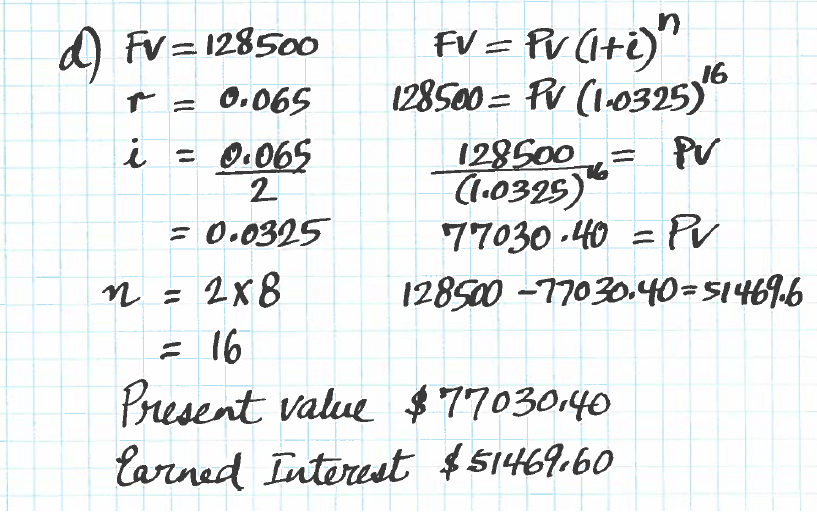 d) FV = 128500
r = 0.065
i = 0.065
2
= 0.0325
n = 2x8
= 16
FV = PV (1+i)^n
128500 = PV (1.0325)^16
128500 = PV
(1.0325)^16
77030.40 = PV
128500 - 77030.40 = 51469.6
Present value $77030.40
Earned Interest $51469.60